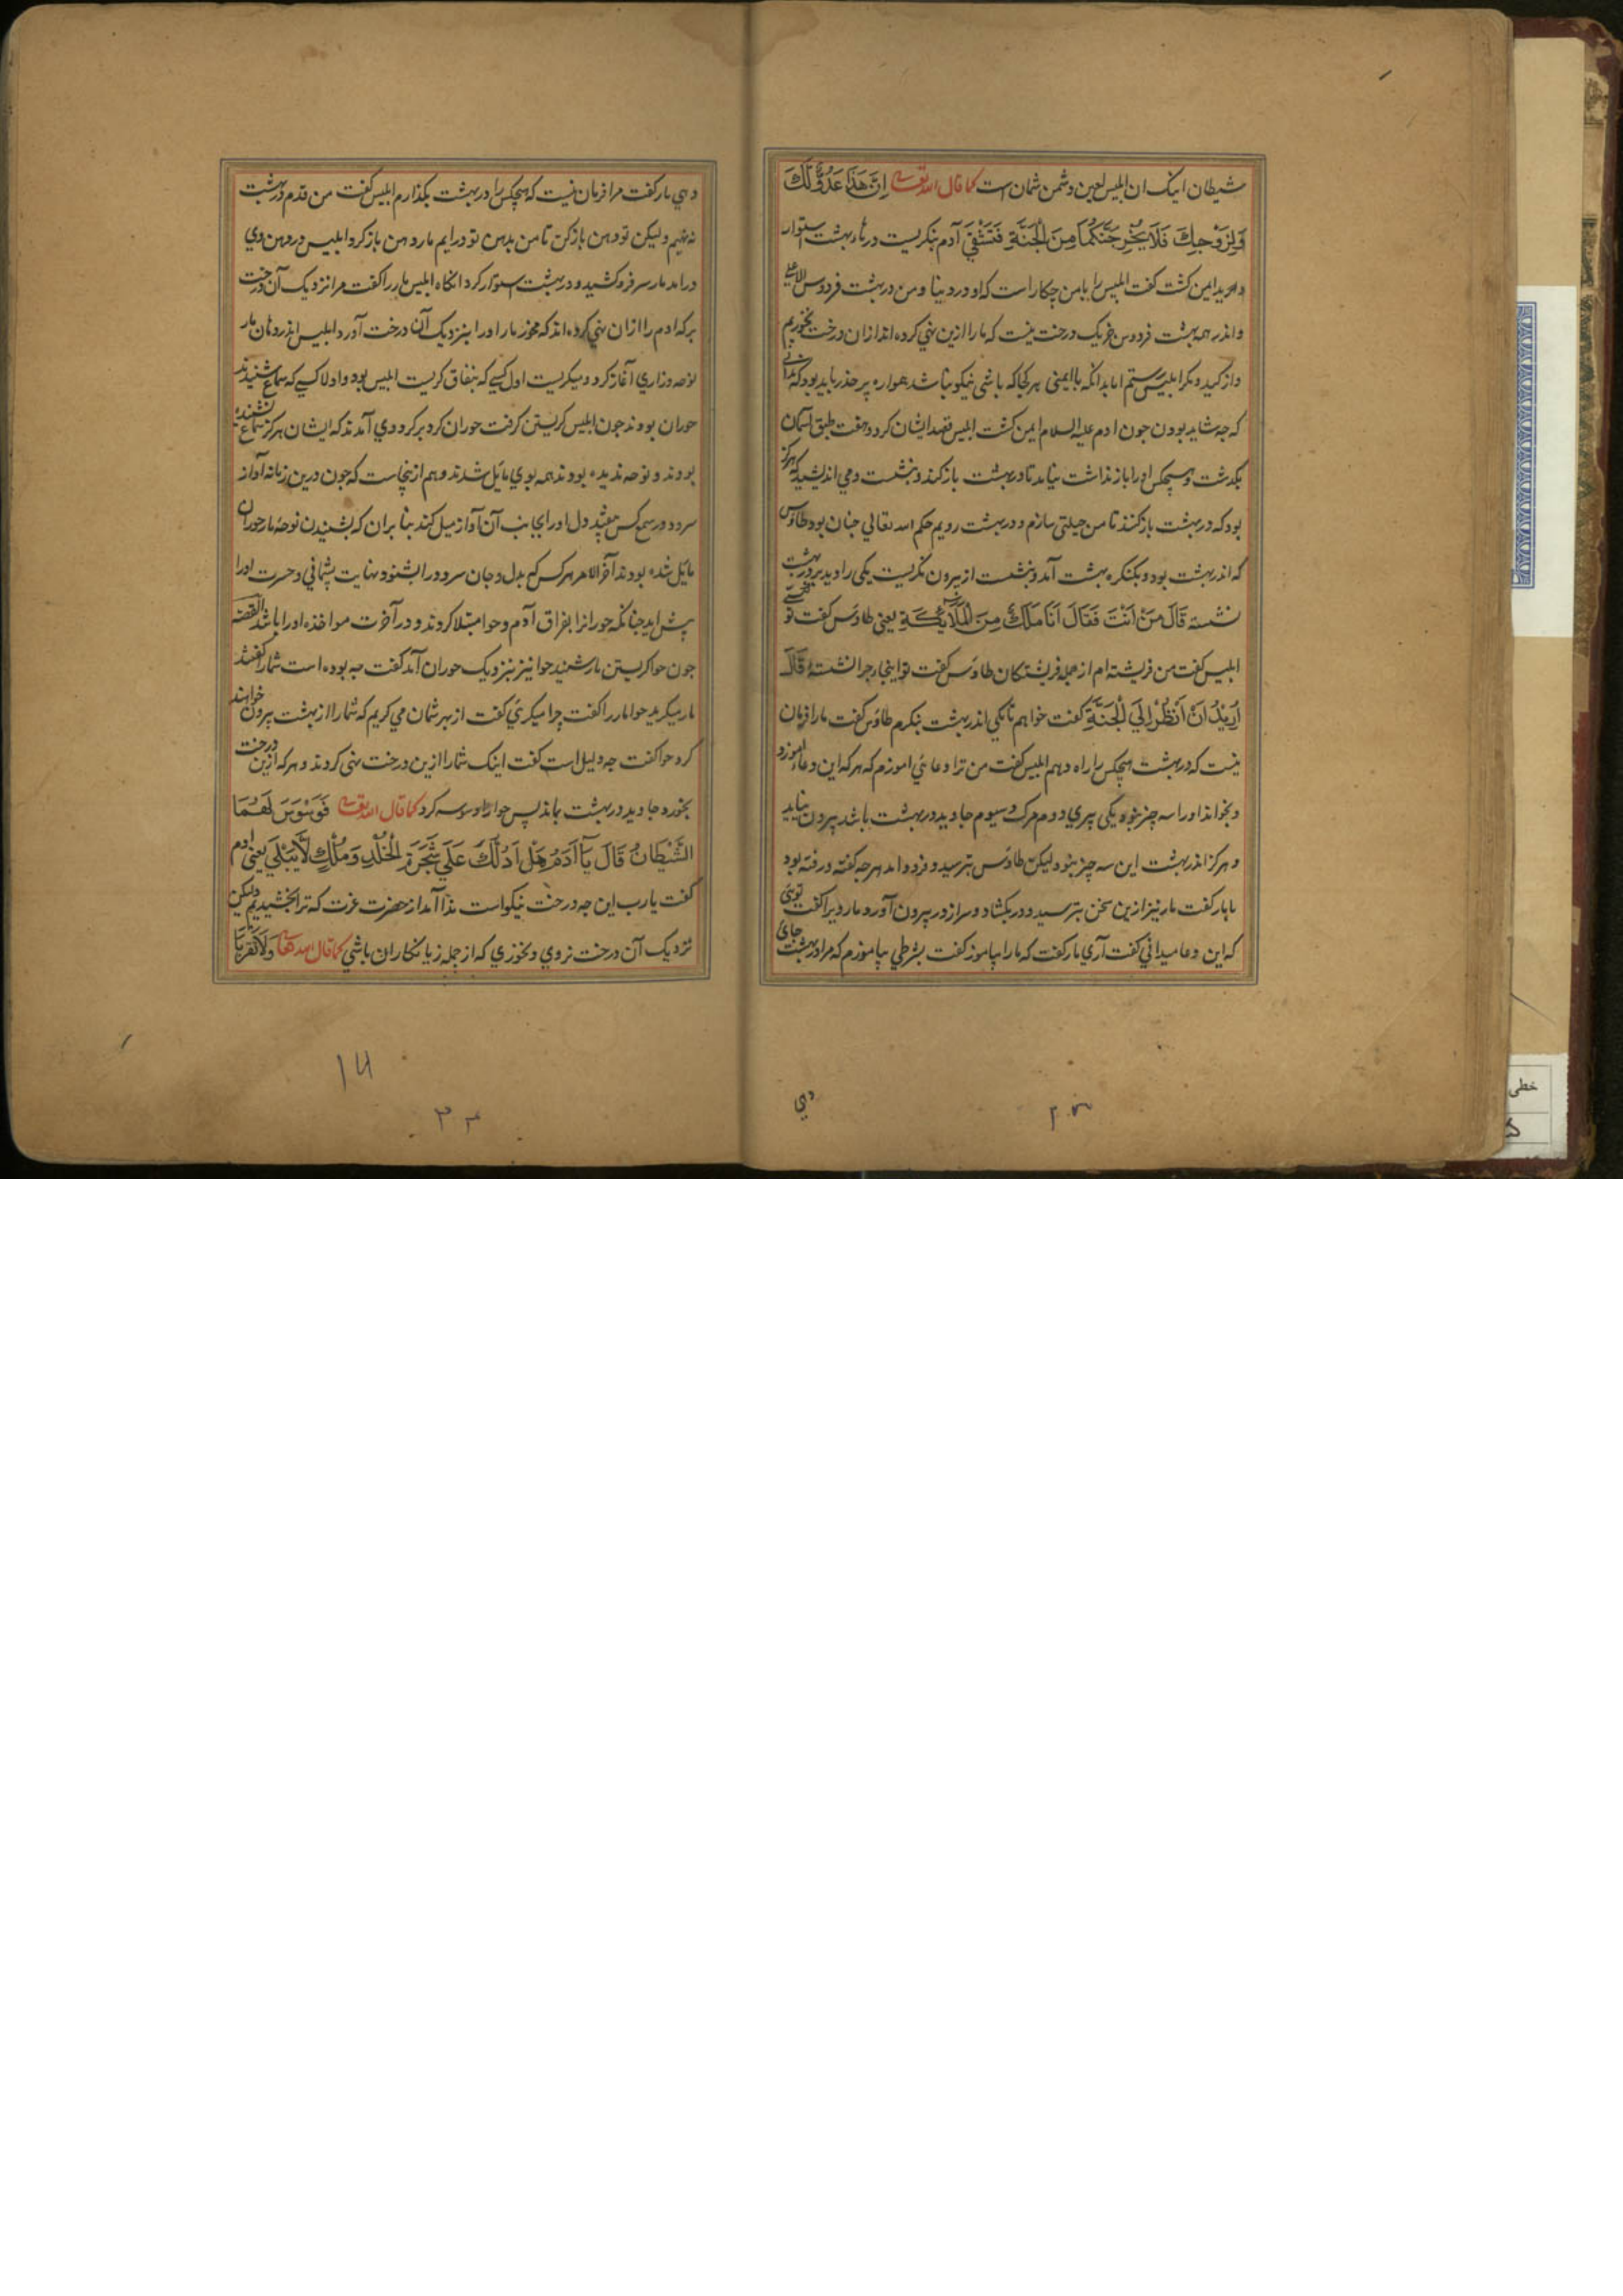 شیطان اینک ان ابلیس لعین دشمن شمان است کما قال الله تعالی اِنَّ هَذَا عَدُوٌّ لَّكَ
وَلِزَوْجِكَ فَلَا يُخْرِجَنَّكُمَا مِنَ الْجَنَّةِ فَتَشْقَىٰ آدم بنکریست درهاء بهشت استوار
دید ایمن کشت کفت ابلیس را با من چکار است که او در دنیا و من در بهشت فردوس اعلی
واندر همه بهشت فردوس جز یک درخت نیست که ما را ازین نهی کرده اند ازان درخت نخوریم
که چه شاید بودن چون ادم علیه السلام ایمن کشت ابلیس قصد ایشان کرد و هفت طبق آسمان
بکذشت و هیچکس او را باز نداشت بیامد تا در بهشت باز کنند و بنشست و می اندیشید که هرکز
بود که در بهشت باز کنند تا من حیلتی سازم و در بهشت رویم حکم الله تعالی چنان بود طاوس
که اندر بهشت بود و بکنکره بهشت آمد و بنشست از بیرون نکریست یکی را دید بر در بهشت
نشسته قَالَ مَنْ اَنْتَ فَقَالَ اَنَا مَلَكٌ مِنَ الْمَلَائِكَةِ یعنی طاوس کفت تو
ابلیس کفت من فریشته ام از جمله فریشتکان طاوس کفت تو اینجا چرا نشستهٔ قَالَ
اُرِيْدُ اَنْ اَنْظُرَ اِلَي الْجَنَّةِ کفت خواهم تا یکی اندر بهشت بنکرم طاوس کفت ما را فرمان
نیست که در بهشت هیچکس را راه دهم ابلیس کفت من ترا دعائی اموزم که هر که این دعا اموزد
و بخواند او را سه چیز نبود یکی پیری دوم مرک و سیوم جاوید در بهشت باشد بیرون نیاید
و هرکز اندر بهشت این سه چیز نبود لیکن طاوس بترسید و فرود امد هر چه کفته و رفته بود
با مار کفت مار نیز ازین سخن بترسید و در بکشاد و سر از در بیرون آورد مار ویرا کفت توئی
که این دعا میدانی کفت آری مار کفت که ما را بیاموز کفت بشرطی بیاموزم که مرا در بهشت جای
دهی
دهی مار کفت مرا فرمان نیست که هیچکس را در بهشت بکذارم ابلیس کفت من قدم در بهشت
نه نهیم ولیکن تو دهن باز کن تا من بدهن تو درایم مار دهن باز کرد ابلیس در دهن وی
درامد مار سر فرو کشید و در بهشت استوار کرد انکاه ابلیس مار را کفت مرا نزدیک آن درخت
بر که ادم را ازان نهی کرده اند که مخور مار او را بنزدیک آن درخت آورد ابلیس اندر دهان مار
نوحه وزاری آغاز کرد و میکریست اول کسی که بنفاق کریست ابلیس بود و اول کسی که سماع شنیدند
حوران بودند چون ابلیس کریستن کرفت حوران کرد بر کرد وی آمدند که ایشان هرکز سماع نشنیده
بودند و نوحه ندیده بودند همه بوی مایل شدند و هم ازینجاست که چون درین زمانه آواز
سرود در سمع کس افتد دل او را بجانب آن آواز میل کند بنا بران که بشنیدن نوحه مار حوران
مایل شده بودند آخر الامر هر کس که بدل و جان سرود را بشنود نهایت پشیمانی و حسرت او را
پیش اید چنانکه حوران را بفراق آدم و حوا مبتلا کردند و در آخرت مواخذه او را باشد القصه
چون حوا کریستن مار شنید حوا نیز بنزدیک حوران آمد کفت چه بوده است شما را کفتند
مار میکرید حوا مار را کفت چرا میکرئی کفت از بهر شمان می کریم که شما را از بهشت بیرون خواهند
کرد حوا کفت چه دلیل است کفت اینک شما را ازین درخت نهی کردند و هر که ازین درخت
بخورد جاوید در بهشت بماند پس حوا را وسوسه کرد کما قال الله تعالی فَوَسْوَسَ لَهُمَا
الشَّيْطَانُ قَالَ يَآ اَدَمُ هَلْ اَدُلُّكَ عَلَي شَجَرَةِ الْخُلْدِ وَمُلْكٍ لَّا يَبْلَي یعنی ادم
کفت یا رب این چه درخت نیکو است ندا آمد از حضرت عزت که ترا بخشیدیم ولیکن
نزدیک آن درخت نروی و نخوری که از جمله زیانکاران باشی کما قال الله تعالی وَلَا تَقْرَبَا
خطی